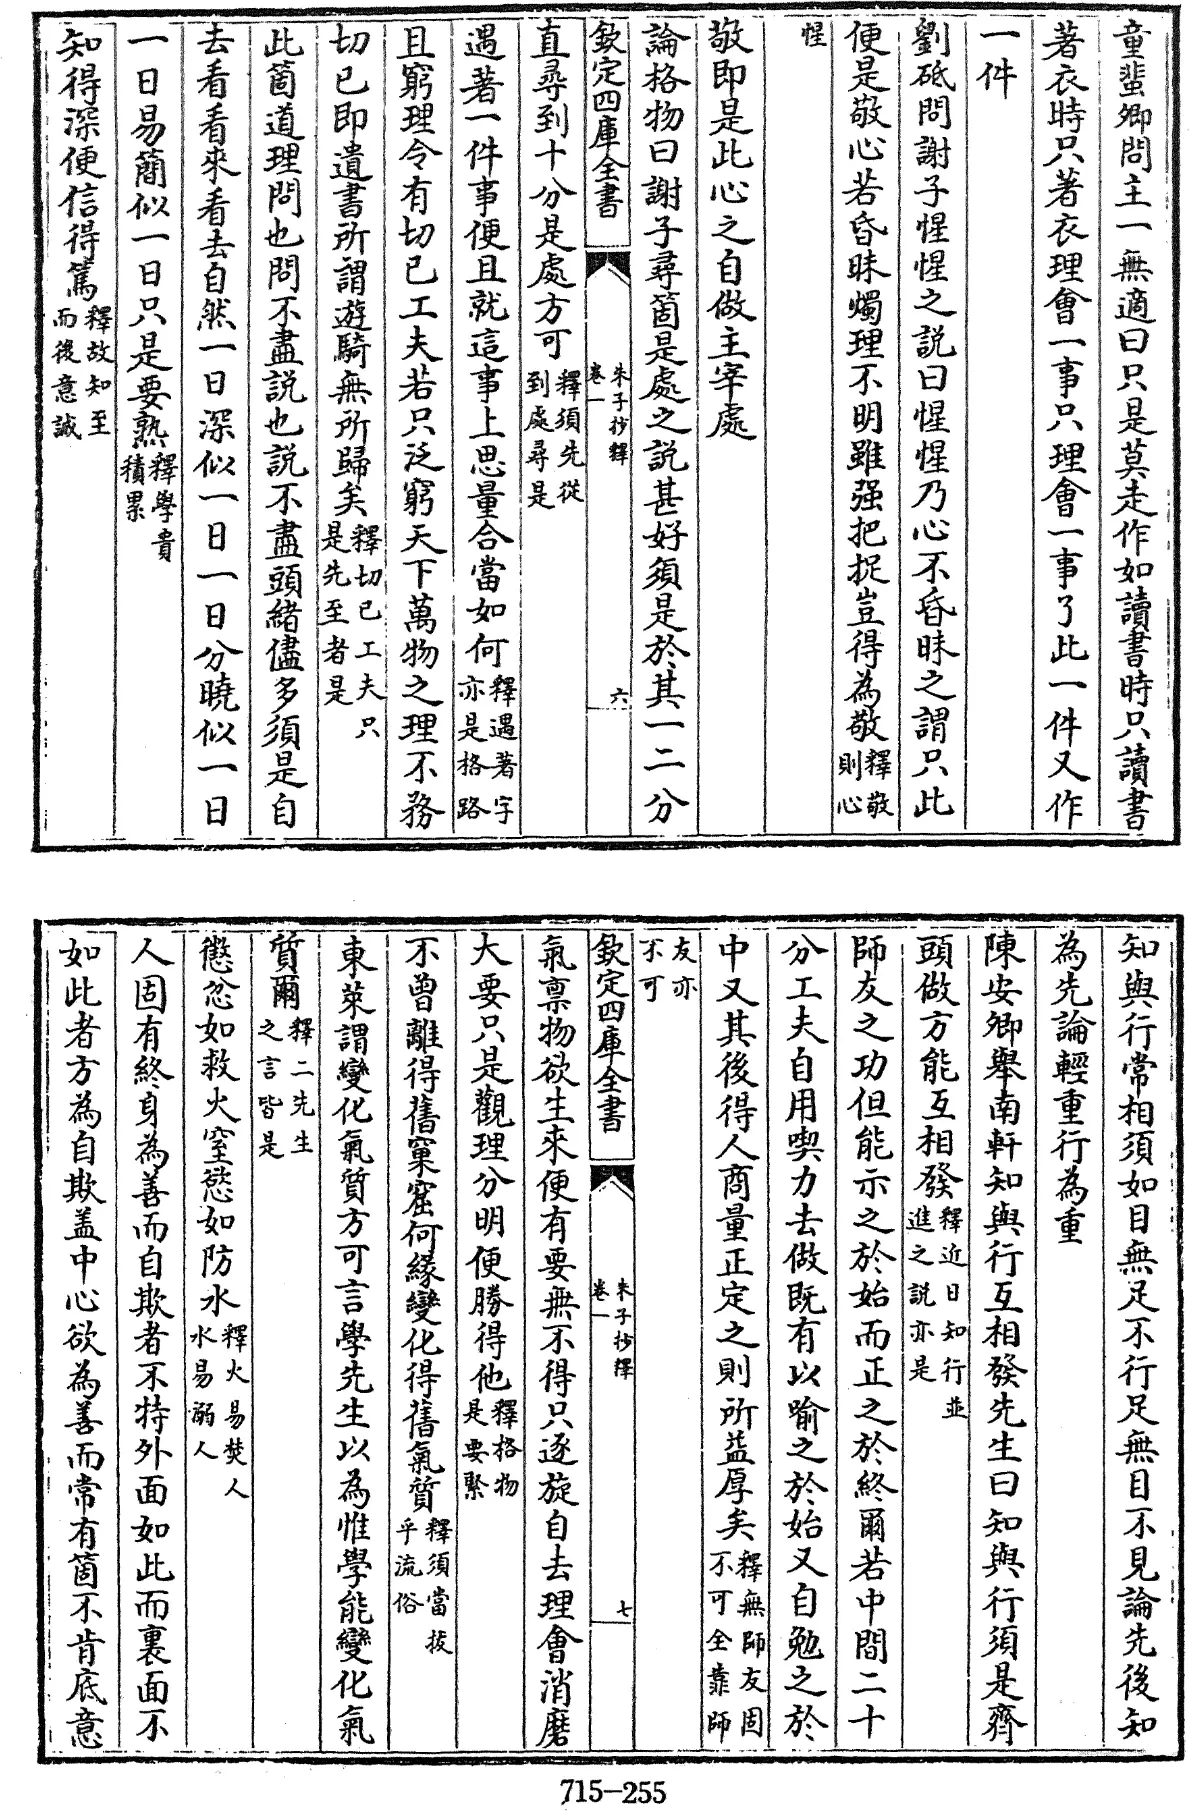 童蜚卿問主一無適曰只是莫走作如讀書時只讀書
著衣時只著衣理會一事只理會一事了此一件又作
一件
劉砥問謝子惺惺之説曰惺惺乃心不昏昧之謂只此
便是敬心若昏昧燭理不明雖强把捉豈得為敬釋敬則心
惺
敬即是此心之自做主宰處
論格物曰謝子尋箇是處之説甚好須是於其一二分
欽定四庫全書
朱子抄釋
卷一
六
直尋到十分是處方可釋須先從到處尋是
遇著一件事便且就這事上思量合當如何釋遇著字亦是格路
且窮理令有切己工夫若只泛窮天下萬物之理不務
切己即遺書所謂遊騎無所歸矣釋切己工夫只是先至者是
此箇道理問也問不盡説也説不盡頭緒儘多須是自
去看看來看去自然一日深似一日一日分曉似一日
一日易簡似一日只是要熟釋學貴積累
知得深便信得篤釋故知至而後意誠
知與行常相須如目無足不行足無目不見論先後知
為先論輕重行為重
陳安卿舉南軒知與行互相發先生曰知與行須是齊
頭做方能互相發釋近日知行並進之説亦是
師友之功但能示之於始而正之於終爾若中間二十
分工夫自用喫力去做既有以喻之於始又自勉之於
中又其後得人商量正定之則所益厚矣釋無師友固不可全靠師
友亦不可
欽定四庫全書
朱子抄釋
卷一
七
氣禀物欲生來便有要無不得只逐旋自去理會消磨
大要只是觀理分明便勝得他釋格物是要緊
不曾離得舊窠窟何緣變化得舊氣質釋須當拔乎流俗
東萊謂變化氣質方可言學先生以為惟學能變化氣
質爾釋二先生之言皆是
懲忿如救火窒慾如防水釋火易焚人水易溺人
人固有終身為善而自欺者不特外面如此而裏面不
如此者方為自欺盖中心欲為善而常有箇不肯底意
715-255